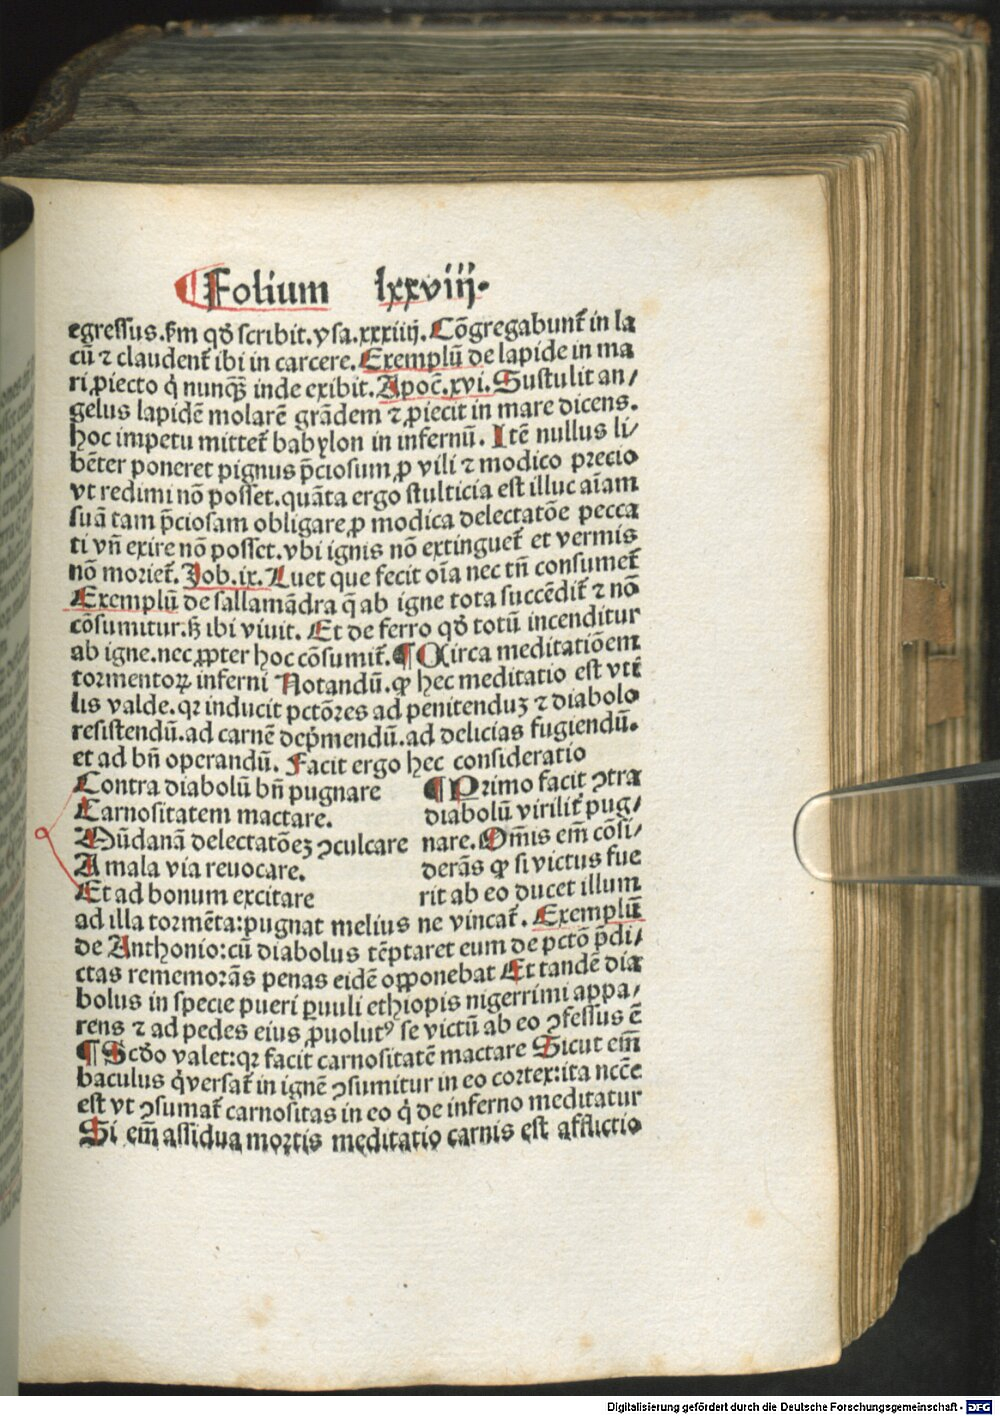 ¶Folium lxxviij.
egressus. ẜm qđ scribit. ysa. xxxiiij. Cõgregabunt᷑ in la
cũ ⁊ claudent᷑ ibi in carcere. Exemplũ de lapide in ma
ri ꝓiecto q̇ nunqꝫ inde exibit. Apoc̃. xvi. Sustulit an/
gelus lapidẽ molarẽ grãdem ⁊ ꝓiecit in mare dicens.
hoc impetu mittet᷑ babylon in infernũ. Itẽ nullus li/
bẽter poneret pignus p̃ciosum ꝓ vili ⁊ modico precio
vt redimi nõ posset. quãta ergo stulticia est illuc aĩam
suã tam p̃ciosam obligare ꝓ modica delectatõe pecca
ti vñ exire nõ posset. vbi ignis nõ extinguet᷑ et vermis
nõ moriet᷑. Job. ix. Luet que fecit oĩa nec tñ consumet᷑
Exemplũ de sallamãdra q̃ ab igne tota succẽdit᷑ ⁊ nõ
cõsumitur. sꝫ ibi viuit. Et de ferro qđ totũ incenditur
ab igne. nec ꝓpter hoc cõsumit᷑. ¶ Circa meditatiõem
tormentoꝝ inferni Notandũ. ꝙ hec meditatio est vti
lis valde. qꝛ inducit pctõres ad penitenduꝫ ⁊ diabolo
resistendũ. ad carnẽ dep̃mendũ. ad delicias fugiendũ.
et ad bñ operandũ. Facit ergo hec consideratio
Contra diabolũ bñ pugnare
Carnositatem mactare.
Mũdanã delectatõeꝫ ꝯculcare
A mala via reuocare.
Et ad bonum excitare
¶ Primo facit ꝯtra
diabolũ virilit᷑ pug/
nare. Om̃is em̃ cõsi/
derãs ꝙ si victus fue
rit ab eo ducet illum
ad illa tormẽta: pugnat melius ne vincat᷑. Exemplũ
de Anthonio: cũ diabolus tẽptaret eum de pctõ p̃di/
ctas rememorãs penas eidẽ opponebat Et tandẽ dia
bolus in specie pueri ꝑuuli ethiopis nigerrimi appa/
rens ⁊ ad pedes eius ꝓuolutꝰ se victũ ab eo ꝯfessus ẽ
¶ Scđo valet: qꝛ facit carnositatẽ mactare Sicut em̃
baculus q̇ versat᷑ in ignẽ ꝯsumitur in eo cortex: ita ncc̃e
est vt ꝯsumat᷑ carnositas in eo q̇ de inferno meditatur
Si em̃ assidua mortis meditatio carnis est afflictio
Digitalisierung gefördert durch die Deutsche Forschungsgemeinschaft - DFG